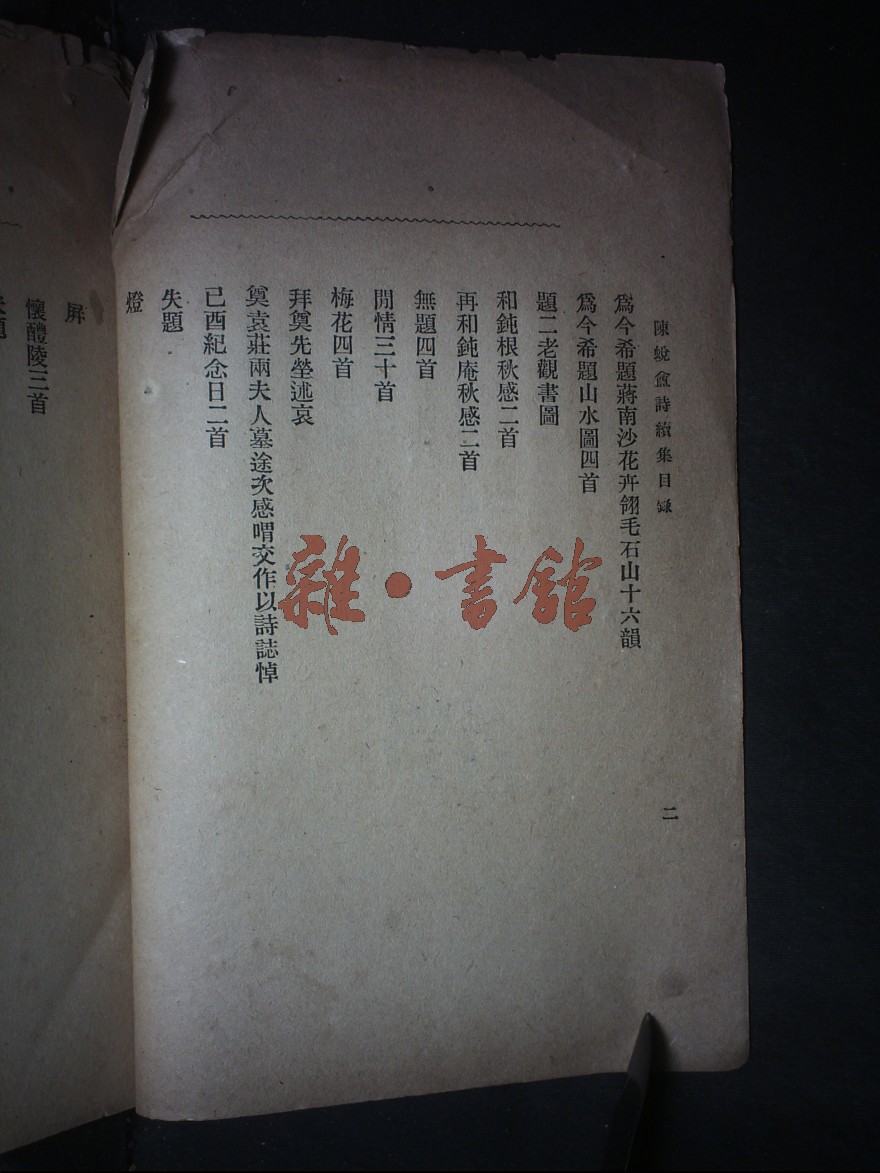 陳蛻盦詩續集目錄
二
爲今希題蔣南沙花卉翎毛石山十六韻
爲今希題山水圖四首
題二老觀書圖
和鈍根秋感二首
再和鈍庵秋感二首
無題四首
閒情三十首
梅花四首
拜奠先塋述哀
奠袁莊兩夫人墓途次感喟交作以詩誌悼
已酉紀念日二首
失題
燈
屏
懷醴陵三首
題
雜·書館